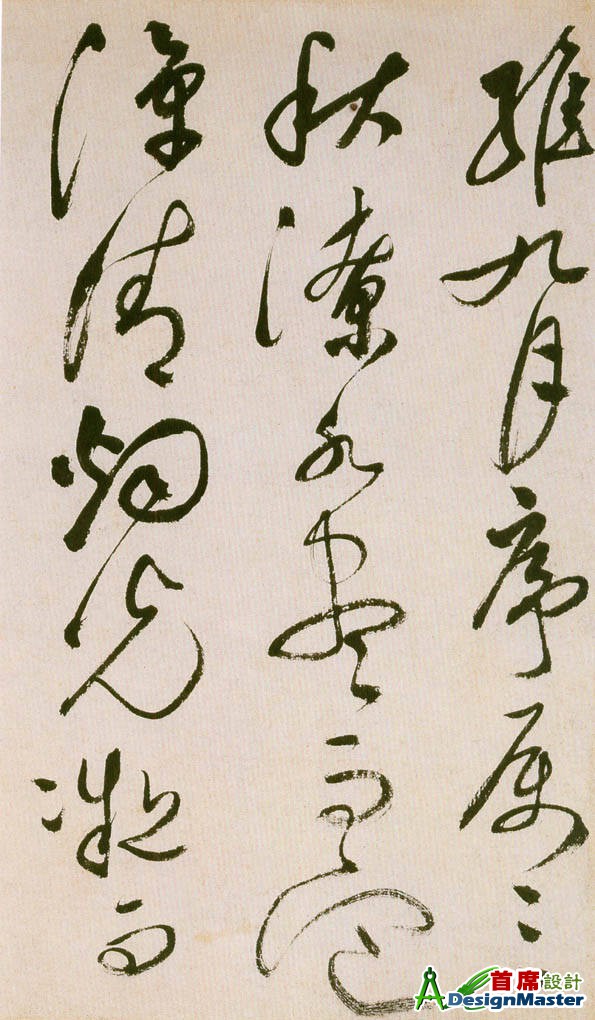 維九月序属三
秋潦水盡而寒
潭清烟光凝而
首席設計
ADesignMaster